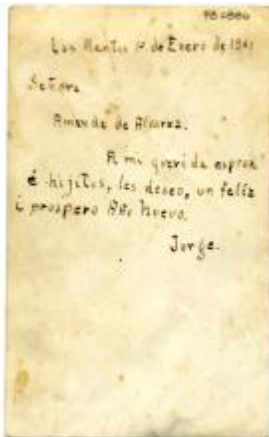 Los Mantes 1º de Enero de 1941
Señora
Amanda de Alvarez.
A mi querida esposa
é hijitos, les deseo, un felíz
é prospero Año Nuevo.
Jorge.